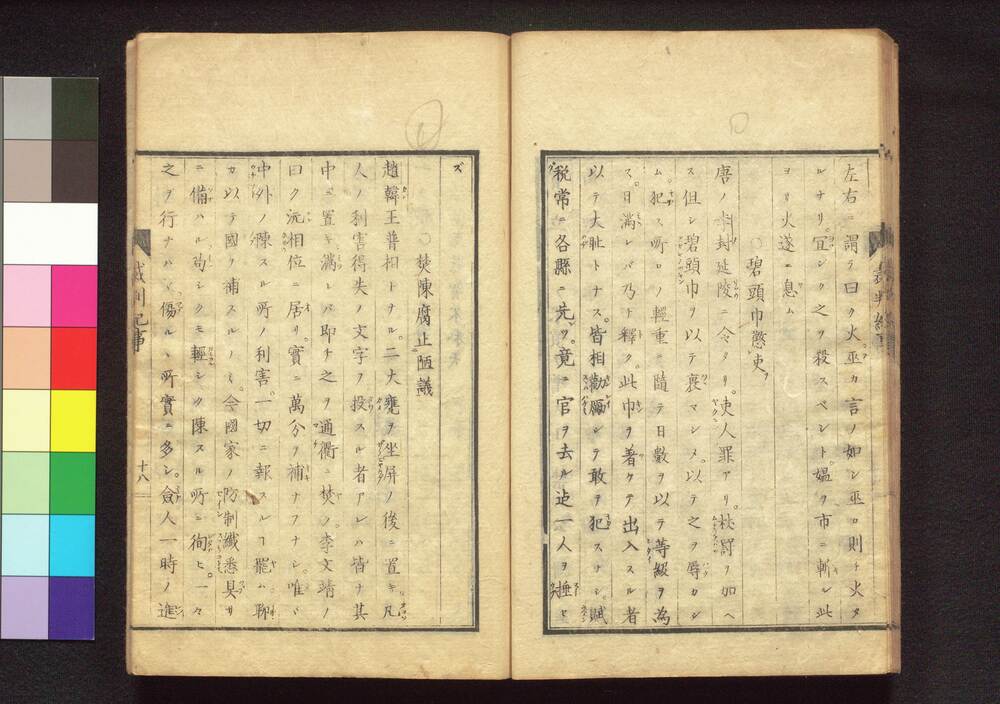 左右ニ謂テ曰ク火巫カ言ノ如シ巫ハ則ト火タ
ルナリ冝シク之ヲ殺スベシト媼ヲ市ニ斬シ此
ヨリ火遂ニ息ム
〇碧頭巾懲吏
唐ノ李封延陵ニ令タリ吏人罪アリ杖罸ヲ加ヘ
ス但シ碧頭巾ヲ以テ裹マシメ以テ之ヲ辱カシ
ム犯ス所ロノ輕重ニ隨テ日數ヲ以テ等級ヲ為
ス日滿レバ乃ト釋ク此巾ヲ著クテ出入スル者
以テ大耻トナス皆相勸勵シ敢ヲ犯スナシ賦
稅常ニ各縣ニ先ツ竟ニ官ヲ去ル迠一人ヲ捶セ
ズ
〇焚陳腐止陋議
趙韓王普相トナル二大甕ヲ坐屏ノ後ニ置キ凡
人ノ利害得失ノ文字ヲ投スル者アレハ皆ナ其
中ニ置キ滿レバ即チ之ヲ通衢ニ焚ク李文靖ノ
曰ク沆相位ニ居リ實ニ萬分ヲ補ナフナシ唯
中外ノ陳スル所ノ利害一切ニ報スルヿ罷ム聊
カ以テ國ヲ補スルノミ今國家ノ防制纎悉具サ
ニ備ハル苟シクモ輕シク陳スル所ニ徇ヒ一々
之ヲ行ナハヾ傷ルヽ所實ニ多シ僉人一時ノ進
十八